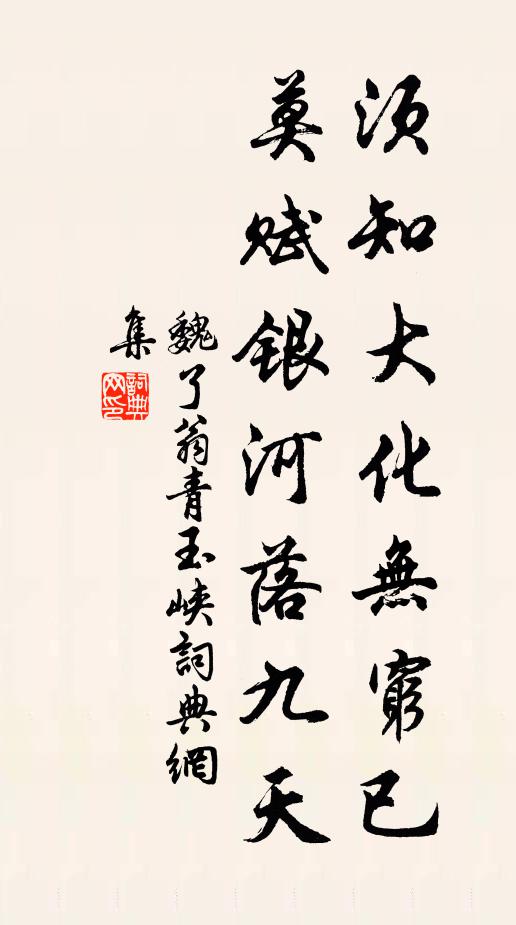 須知大化無窮已
莫賦銀河落九天
魏了翁青玉峽詞典網
集
詞典
网印